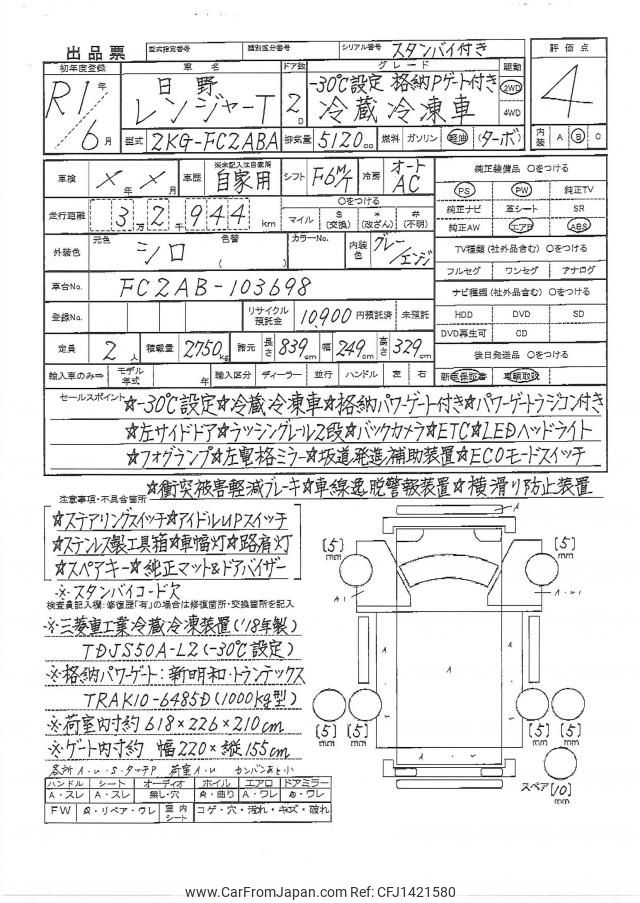 出品票 型式指定番号 類別区分番号 シリアル番号 スタンバイ付き
初年度登録 車名 ドア数 グレード 駆動 評価点
R1年 6月
日野 レンジャーT
2D
-30℃設定 格納Pゲート付き
冷蔵冷凍車
2WD 4WD
4
型式 2KG-FC2ABA 排気量 5120cc 燃料 ガソリン 軽油 (ターボ) 内装 A B C
車検 ×年×月 車歴 ※未記入は自家用 自家用 シフト F6M/T 冷房 オートAC 純正装備品 ○をつける
PS PW 純正TV
走行距離 3万2千944km ○をつける
マイル $(交換) *(改ざん) #(不明)
純正ナビ 革シート SR
純正AW エアB ABS
外装色 元色 シロ 色替 カラーNo. 内装色 グレー/エンジ
TV種類(社外品含む) ○をつける
フルセグ ワンセグ アナログ
車台No. FC2AB-103698
ナビ種類(社外品含む) ○をつける
登録No. リサイクル預託金 10,900円預託済 未預託
HDD DVD SD
DVD再生可 CD
定員 2人 積載量 2750kg 諸元 長さ 839cm 幅 249cm 高さ 329cm
後日発送品 ○をつける
輸入車のみ⇒ モデル年式 年 輸入区分 ディーラー 並行 ハンドル 左 右
新車保証書 車輌取説
セールスポイント ☆-30℃設定☆冷蔵冷凍車☆格納パワーゲート付き☆パワーゲートラジコン付き
☆左サイドドア☆ラッシングレール2段☆バックカメラ☆ETC☆LEDヘッドライト
☆フォグランプ☆左電格ミラー☆坂道発進補助装置☆ECOモードスイッチ
☆衝突被害軽減ブレーキ☆車線逸脱警報装置☆横滑り防止装置
注意事項・不具合箇所
☆ステアリングスイッチ☆アイドルUPスイッチ
☆ステンレス製工具箱☆車幅灯☆路肩灯
☆スペアキー☆純正マット&ドアバイザー
※スタンバイコード欠
検査員記入欄:修復歴「有」の場合は修復箇所・交換箇所を記入
※三菱重工業冷蔵冷凍装置('18年製)
TDJS50A-L2(-30℃設定)
※格納パワーゲート:新明和・トランテックス
TRAK10-6485D(1000kg型)
※荷室内寸約618×226×210cm
※ゲート内寸約 幅220×縦155cm
各所A・U・S・タッチP 荷室A・U カンバンあと小
ハンドル シート オーディオ ホイル エアロ ドアミラー
A・スレ A・スレ 無し・穴 A・曲り A・ワレ A・ワレ
FW A・リペア・ワレ 室内シート コゲ・穴・汚れ・キズ・破れ
A
[5]mm [5]mm
A1 A・U1
A A A
[5]mm [5]mm [5]mm [5]mm
A
スペア[10]mm
www.CarFromJapan.com Ref: CFJ1421580